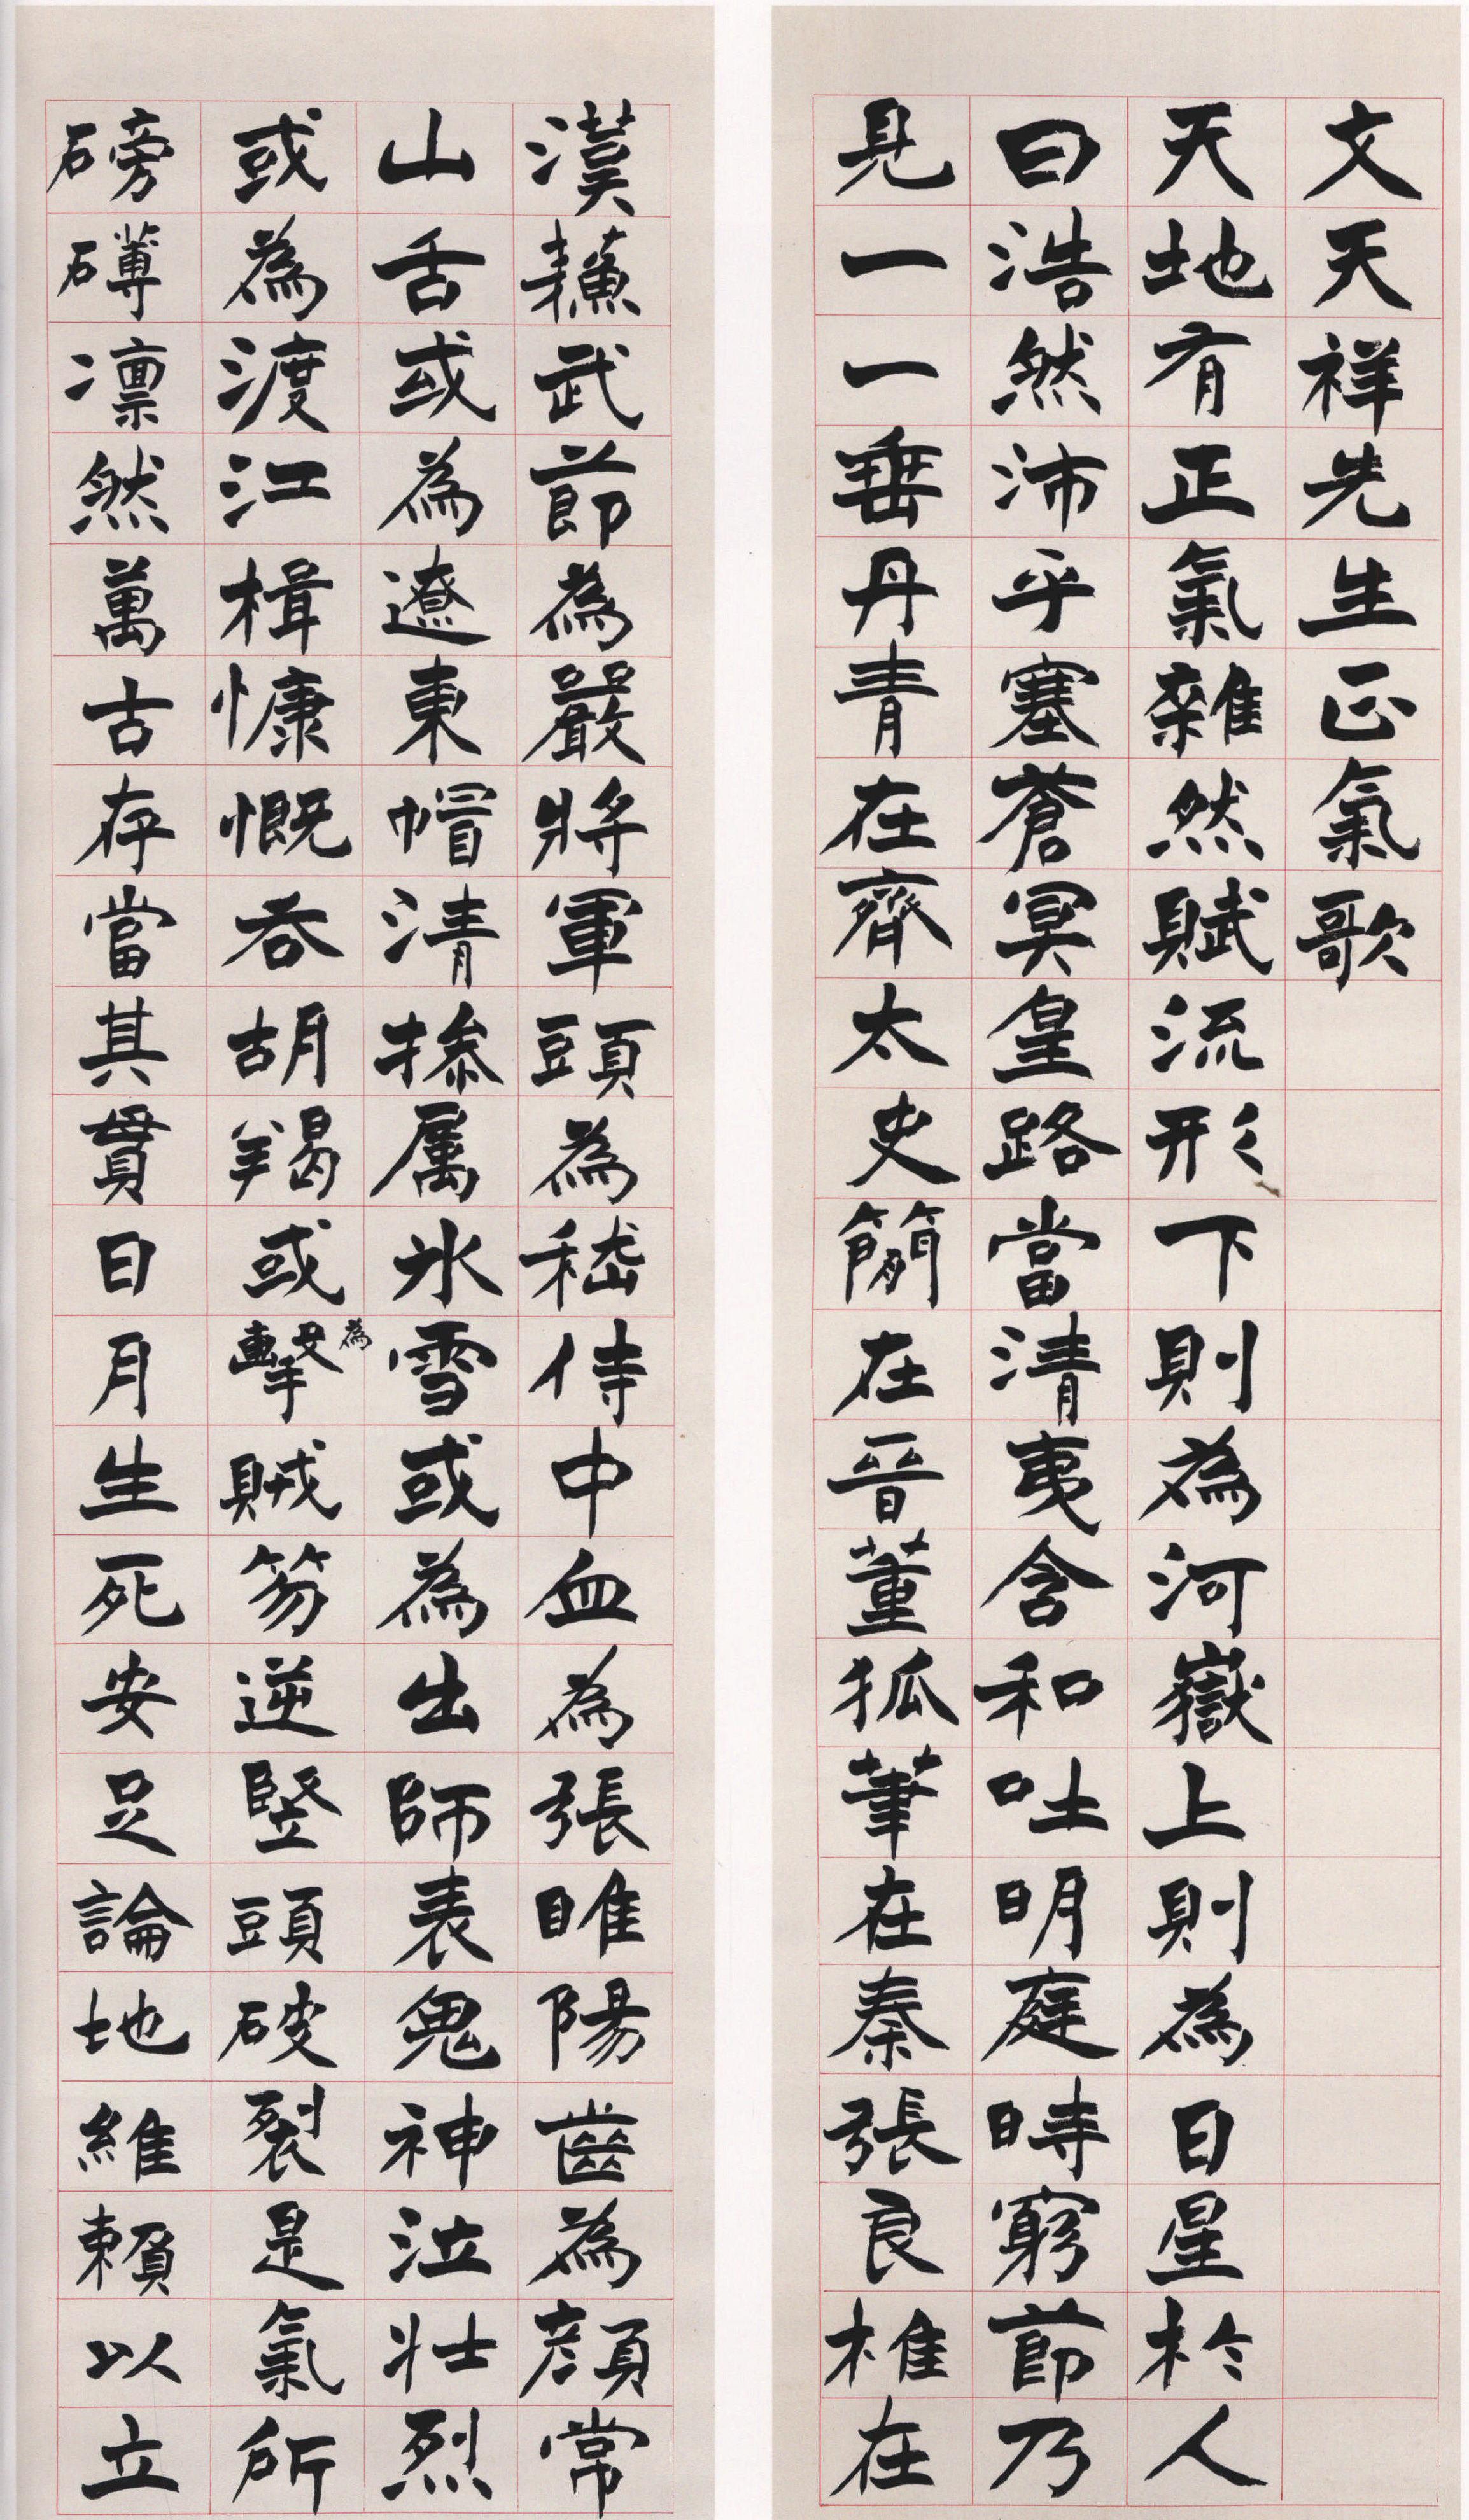 文天祥先生正氣歌
天地有正氣雜然賦流形下則為河嶽上則為日星於人
曰浩然沛乎塞蒼冥皇路當清夷含和吐明庭時窮節乃
見一一垂丹青在齊太史簡在晉董狐筆在秦張良椎在
漢蘇武節為嚴將軍頭為嵇侍中血為張睢陽齒為顏常
山舌或為遼東帽清操厲冰雪或為出師表鬼神泣壯烈
或為渡江楫慷慨吞胡羯或為擊賊笏逆豎頭破裂是氣所
磅礴凜然萬古存當其貫日月生死安足論地維賴以立